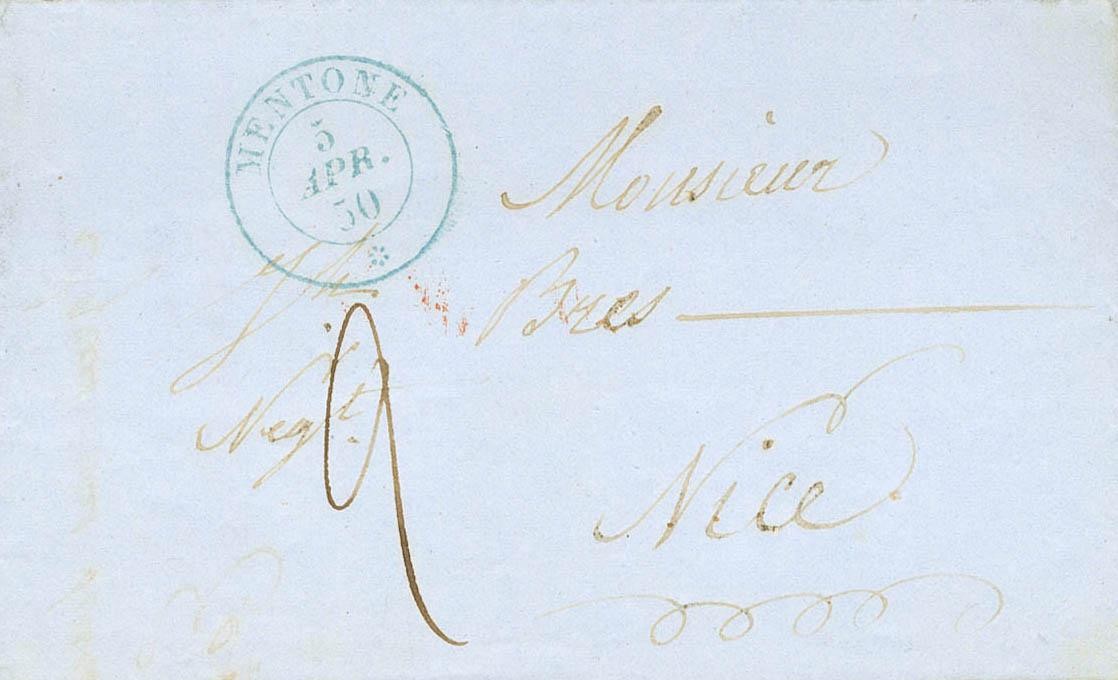 MENTONE
5
APR.
50
Monsieur
Jh. Bres
Negt.
Nice